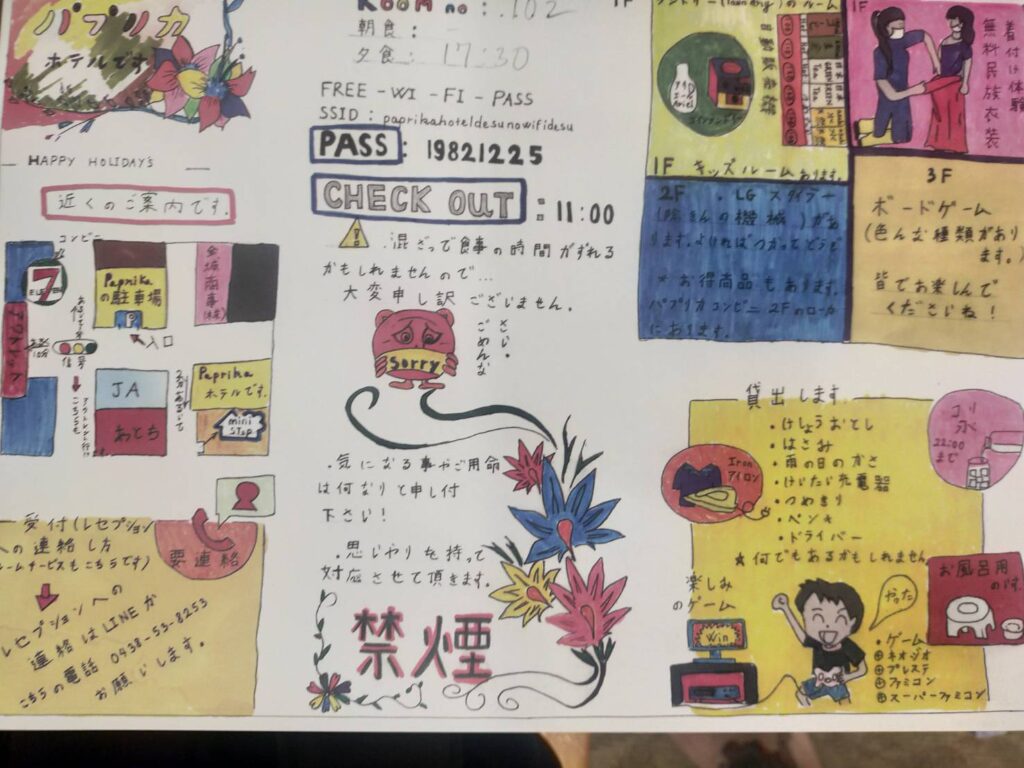 パプリカ
ホテルです
HAPPY HOLIDAY'S
近くのご案内です。
コンビニ
7
ELEVEN
Paprika
の駐車場
P
入口
アウトレット
信号
JA
おとち
Paprika
ホテルです。
mini
STOP
受付(レセプション
への連絡し方
ームサービスもこちらです)
要連絡
レセプションへの
連絡はLINEか
こちらの電話 0438-53-8253
お願いします。
ROOM no : 102
朝食 : -
夕食 : 17:30
FREE-WI-FI-PASS
SSID : paprikahoteldesunowifidesu
PASS : 19821225
CHECK OUT : 11:00
混ざって食事の時間がずれる
かもしれませんので…
大変申し訳ございません。
Sorry
ごめんな
さい。
・気になる事やご用命
は何なりと申し付
下さい!
・思いやりを持って
対応させて頂きます。
禁煙
1F
ンドリー(laundry)のルーム
自動販売機
Ariel
コインランドリー
1F キッズルームあります。
1F
着付け体験
無料民族衣装
2F . LG スタイラー
(除きんの機械)があ
ります。よければつかってどうぞ
* お得商品もあります。
パプリカコンビニ 2Fのロ
にあります。
3F
ボードゲーム
(色んな種類があり
ます。)
皆でお楽しんで
くださいね!
貸出します。
・けしょうおとし
・はさみ
・雨の日のかさ
・けいたい充電器
・つめきり
・ペンチ
・ドライバー
★何でもあるかもしれません
Iron
アイロン
氷
22:00
まで
お風呂用
のいす。
楽しみ
のゲーム
Win
やった
・ゲーム
⊕ネオジオ
⊕プレステ
⊕ファミコン
⊕スーパーファミコン